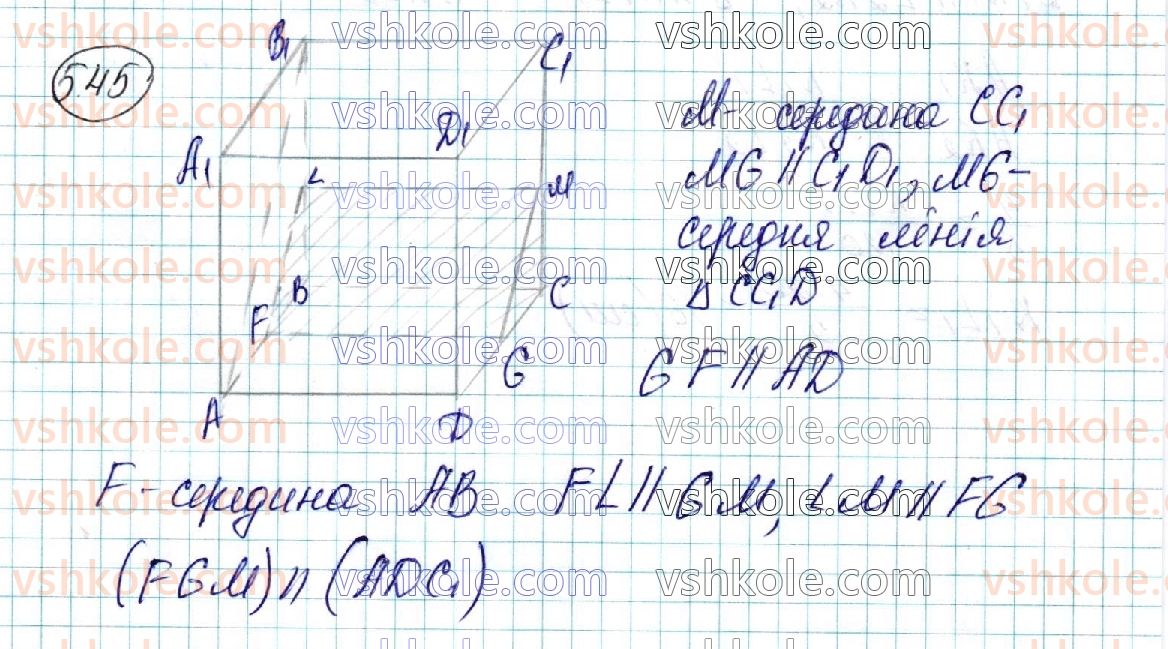 545
B₁ C₁
A₁ D₁
L M
B C
F G
A D
M - середина CC₁
MG || C₁D₁, MG -
середня лінія
Δ CC₁D
GF || AD
F - середина AB FL || GM, LM || FG
(FGM) || (ADC₁)
vshkole.com